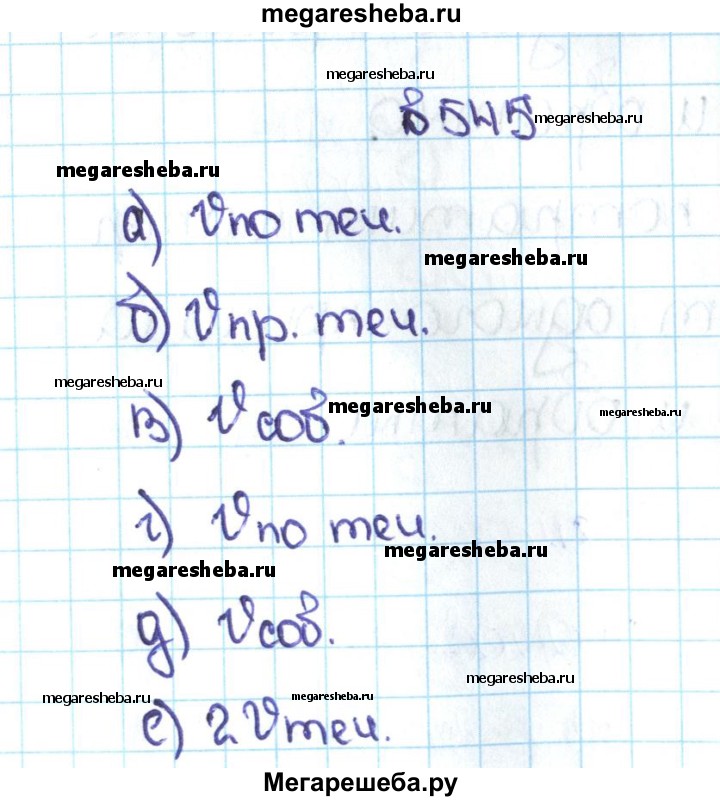 megaresheba.ru
megaresheba.ru
в 545 megaresheba.ru
megaresheba.ru
а) Vпо теч.
megaresheba.ru
б) Vпр. теч.
megaresheba.ru
в) Vсоб. megaresheba.ru megaresheba.ru
г) Vпо теч.
megaresheba.ru
megaresheba.ru
д) Vсоб.
megaresheba.ru
megaresheba.ru megaresheba.ru
е) 2Vтеч.
Мегарешеба.ру